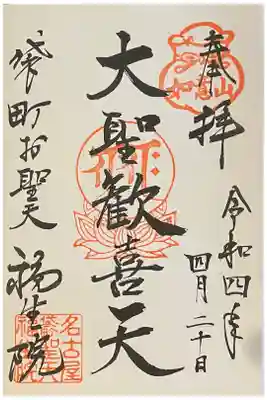 奉拝
令和四年
四月二十日
大聖歓喜天
袋町お聖天
福生院
名古屋